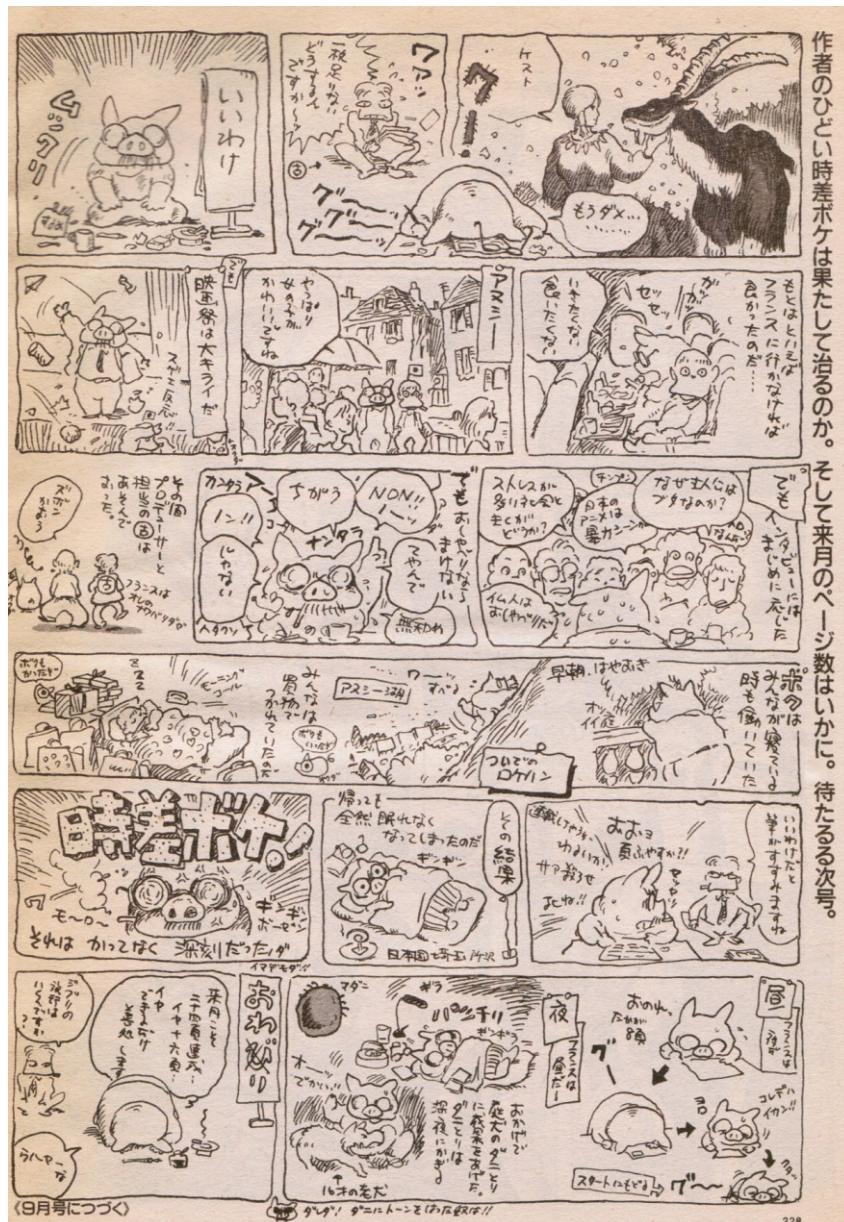 作者のひどい時差ボケは果たして治るのか。そして来月のページ数はいかに。待たるる次号。
ケスト
グー
もうダメ…
ワァッ
一枚足りない
どうするん
ですかーッ
グー
グー
グー
いいわけ
ムックリ
もとはといえば
フランスに行かなければ
良かったのだ…
ガツ
ガツ
セッセッ
いきたくない
食いたくない
アヌシー
やっぱり
女の子が
かわいいですね
でも
映画祭は大キライだ
スグに反応!!
でも
インタビューには
まじめに応じた
なぜ主人公は
ブタなのか?
日本の
アニメは
暴力シーンが
ストレスが
多リネと会と
生くが
どうか?
仏人は
おしゃべりだ
でもおしゃべりなら
まけない
NON!!
ノーッ
ちがう
ナンタラ
カンタラ
ノン!!
じゃない
てやんで
その間
プロデューサーと
担当の
は
あそんで
おった。
ズボン
かおう
フランスは
オレの
ボクは
みんなが寝ている
時も働いていた
早朝、はやおき
ついでの
ロケハン
ワーッ
すべる
アヌシー湖
みんなは
買物で
つかれていたのだ
モーニング
コール
ボクも
かったぞ
いいわけだと
筆がすすみますね
おおョ
頁ふやすか?!
サァ殺せ
その結果
帰っても
全然眠れなく
なってしまったのだ
ギンギン
日本国埼玉所沢
時差ボケ!
モ〜ロ〜
ギンギン
ボーゼン
それはかってなく深刻だったノダ
イマデモダ!!
昼
フランスは
夜だ
おのれ、
たかが
グー
コレデハ
イカン!!
スタートにもどる
グ〜
夜
フランスは
昼だー
ギラ
パッチリ
ギンギラ
マダニ
オーッ
でかい!!
おかげで
愛犬のダニとり
に成果をあげた。
ダニとりは
深夜にかぎる
16才の老犬
おわびり
来月こそ
二十四頁達成…
イヤ十六頁…
イヤ
できるだけ
善処します
ジブリの
いくつですか
?
うひゃーな
《9月号につづく》
ダレダ!ダニにトーンをはった奴は!!
228